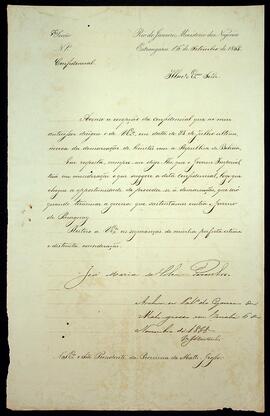 Secção Rio de Janeiro, Ministerio dos Negocios
N.º Estrangeiros, 15 de Setembro de 1868.
Confidencial
Illmo e Exmo Snr
Accuso a recepção da confidencial que o meu
antecessor dirigio o de V. Exa em data de 28 de Julho ultimo
acerca da demarcação de limites com a Republica de Bolivia
Em resposta, cumpre-me dizer-lhe que o Governo Imperial
terá em consideração o que suggere a dita confidencial, logo que
chegue a opportunidade de proceder-se á demarcação, que será
quando terminar a guerra que sustentamos contra o governo
do Paraguay.
Reitero a V. Exa as seguranças de minha perfeita estima
e distincta consideração.
José Maria da Silva Paranhos
Archive-se. Palº do Governo de
Mato-grosso em Cuiabá 6 de
Novembro de 1868
A S. Exa o Snr Presidente da Provincia de Matto Grosso